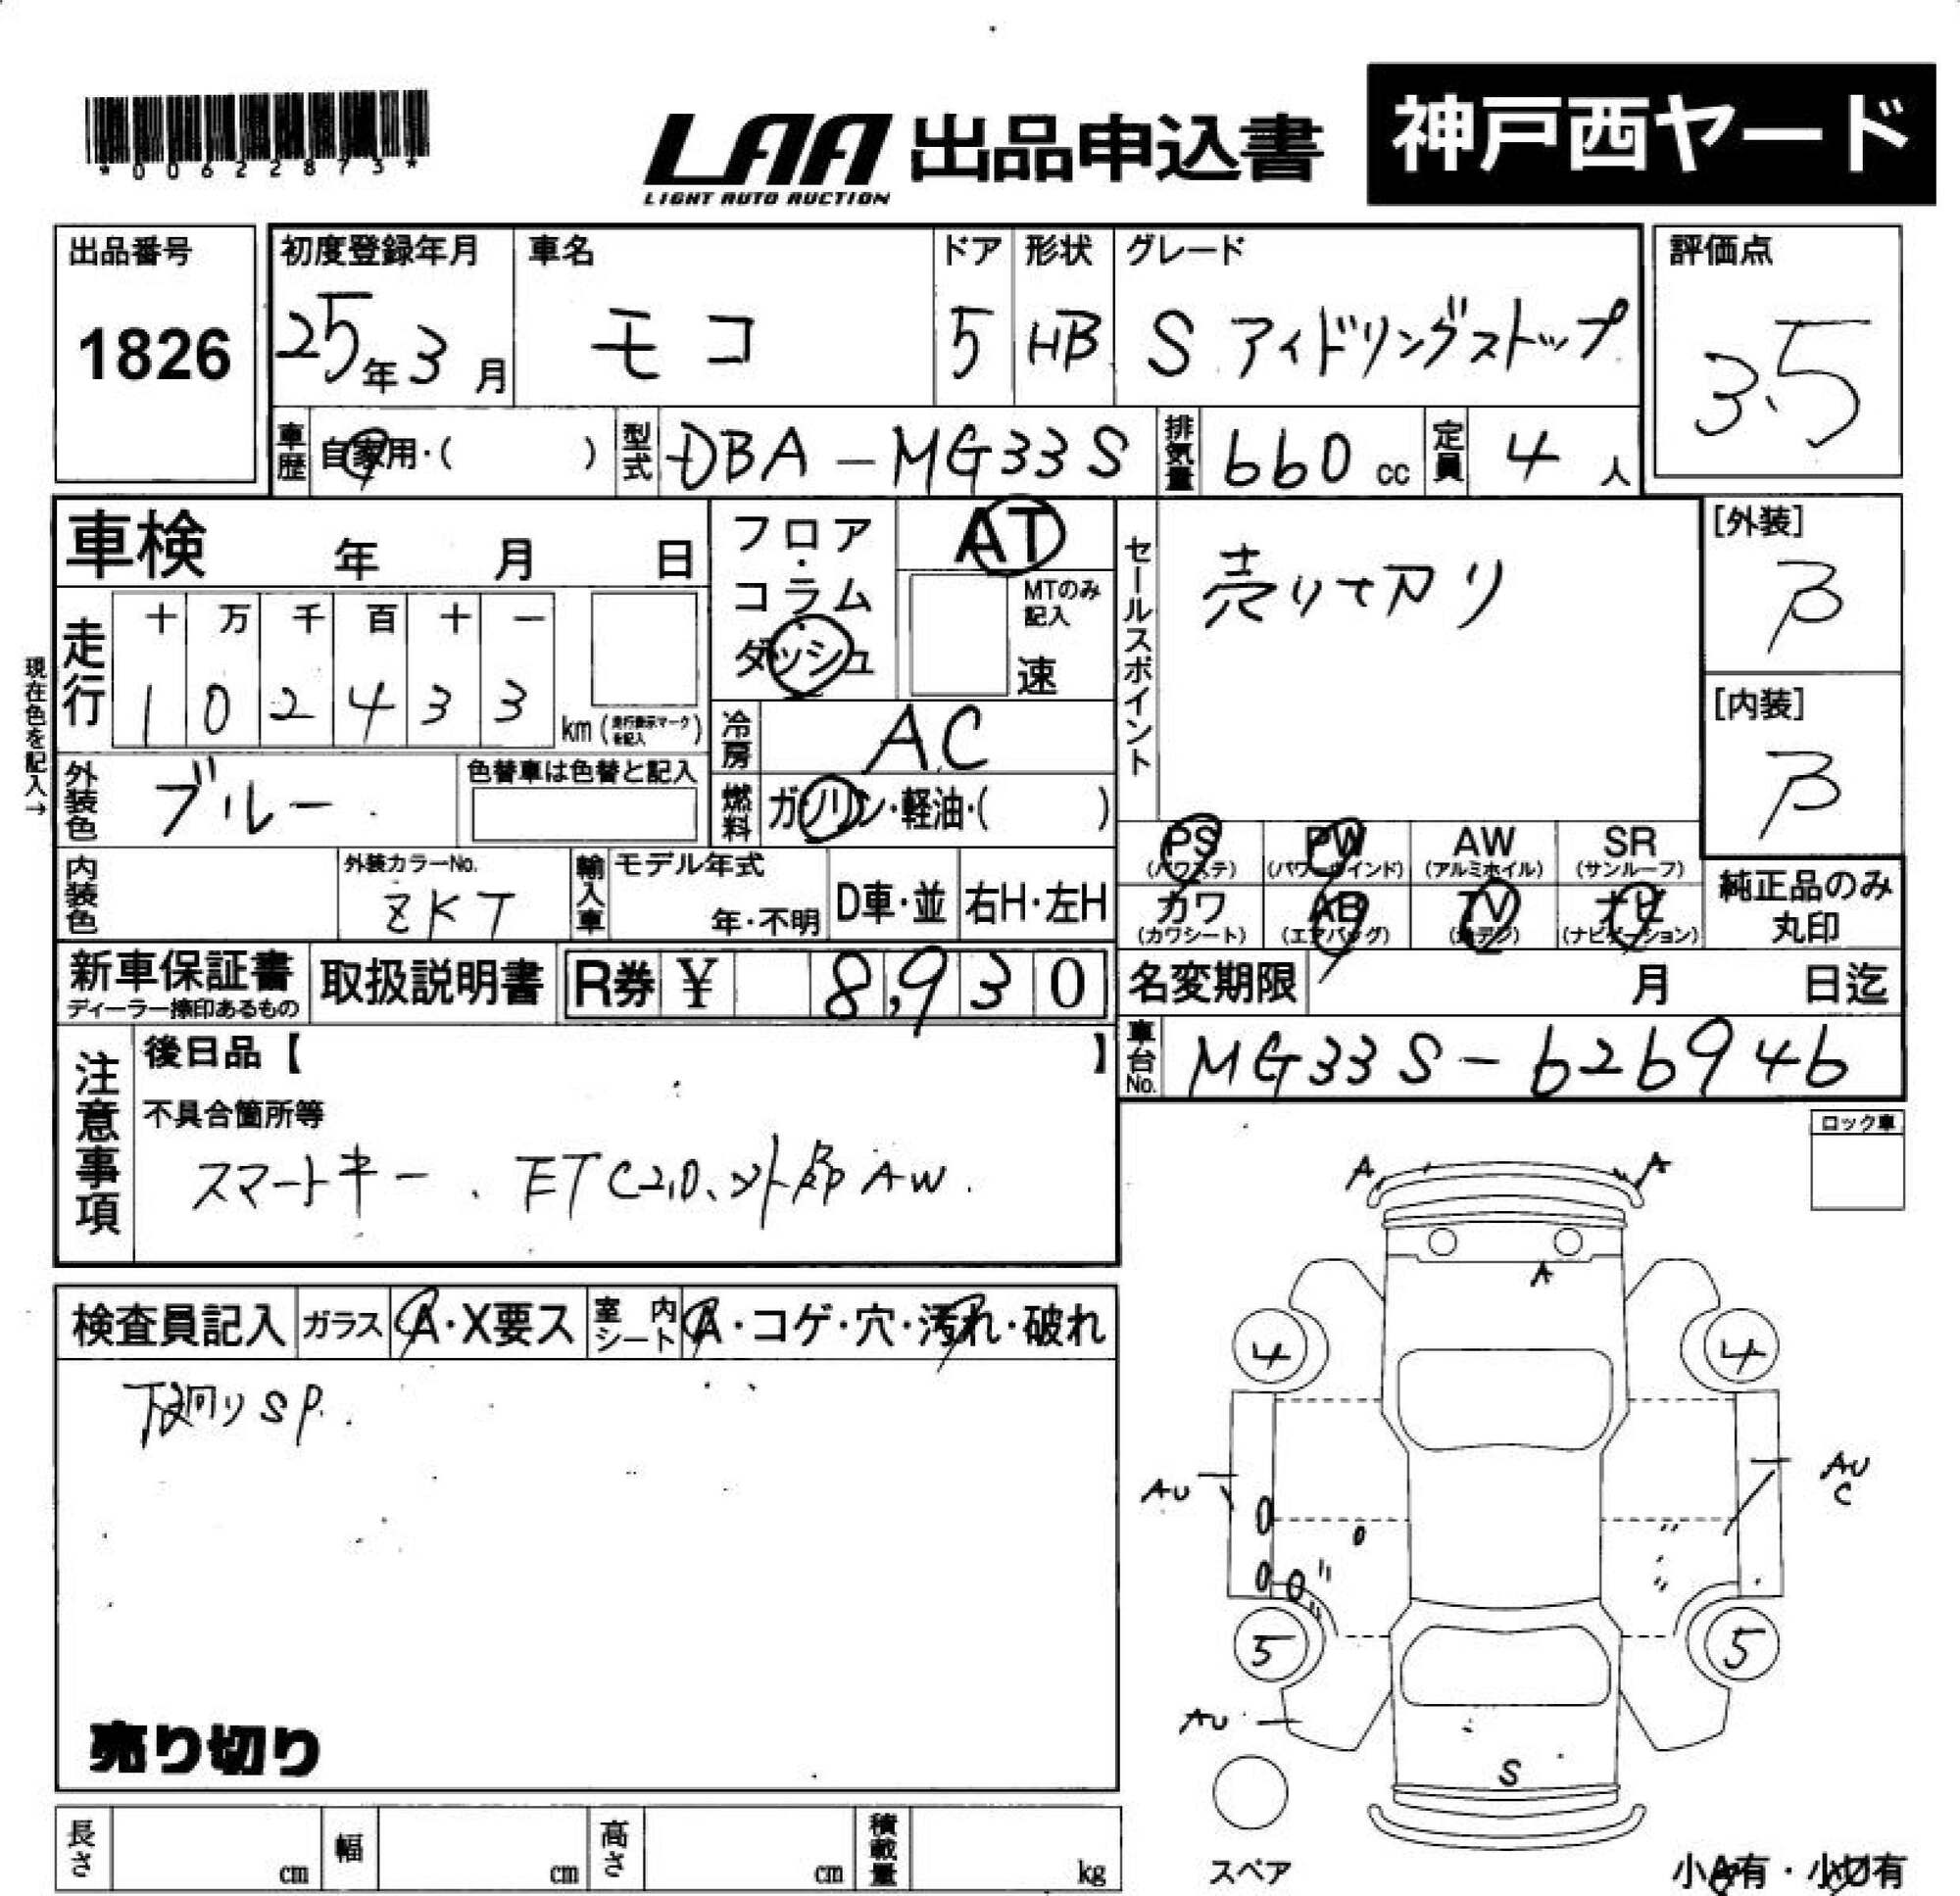 *00622873*
LAA 出品申込書 神戸西ヤード
LIGHT AUTO AUCTION
出品番号 初度登録年月 車名 ドア 形状 グレード 評価点
1826 25年3月 モコ 5 HB S アイドリングストップ 3.5
車歴 自家用・( ) 型式 DBA-MG33S 排気量 660 cc 定員 4 人
車検 年 月 日 フロア・コラム・ダッシュ AT セールスポイント [外装]
MTのみ記入 速 売り切り β
現在色を記入→
走行 十 万 千 百 十 一
1 0 2 4 3 3 km (走行表示マークを記入) [内装]
冷房 AC β
外装色 ブルー 色替車は色替と記入 燃料 ガソリン・軽油・( )
PS (パワステ) PW (パワーウインド) AW (アルミホイル) SR (サンルーフ)
内装色 外装カラーNo. ZKT 輸入車 モデル年式 年・不明 D車・並 右H・左H
カワ (カワシート) AB (エアバッグ) TV ナビ (ナビゲーション) 純正品のみ丸印
新車保証書 取扱説明書 R券 ¥ 8,930 名変期限 月 日迄
ディーラー捺印あるもの
注意事項 後日品【 】 車台No. MG33S-626946
不具合箇所等 ロック車
スマートキー、ETC2.0、外部AW.
A A
A
検査員記入 ガラス A・X要ス 室内シート A・コゲ・穴・汚れ・破れ
4 4
下廻りSP.
AU AU
C
5 5
AU
売り切り
S
長さ cm 幅 cm 高さ cm 積載量 kg スペア 小A有・小U有